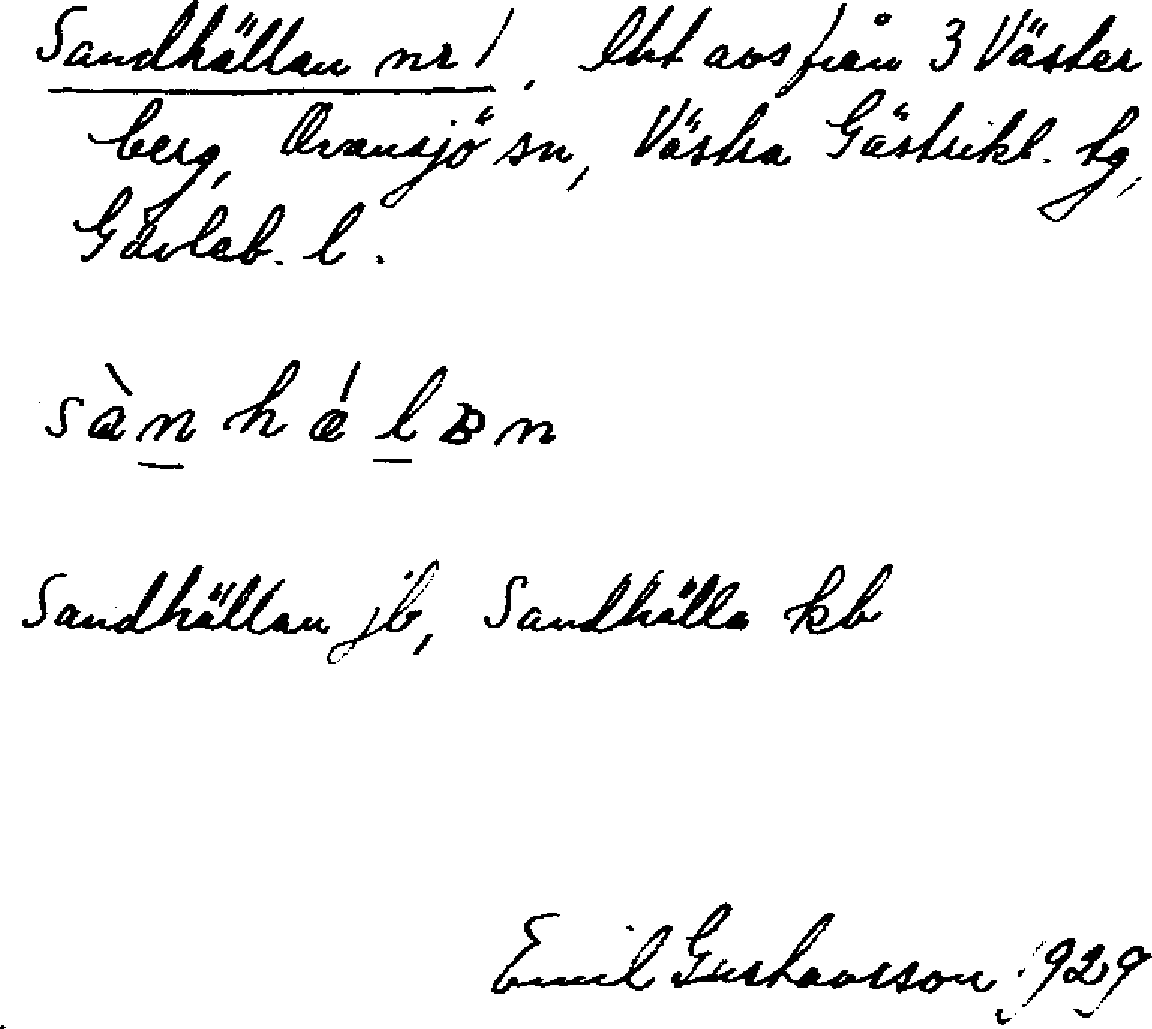 Sandhällan nr 1. lht avs från 3 Väster
berg, Ovansjö sn, Västra Gästrikl. tg,
Gävleb. l.
sàn hǽlBn
Sandhällan jb, Sandhälla kb
Emil Gustavsson 1929